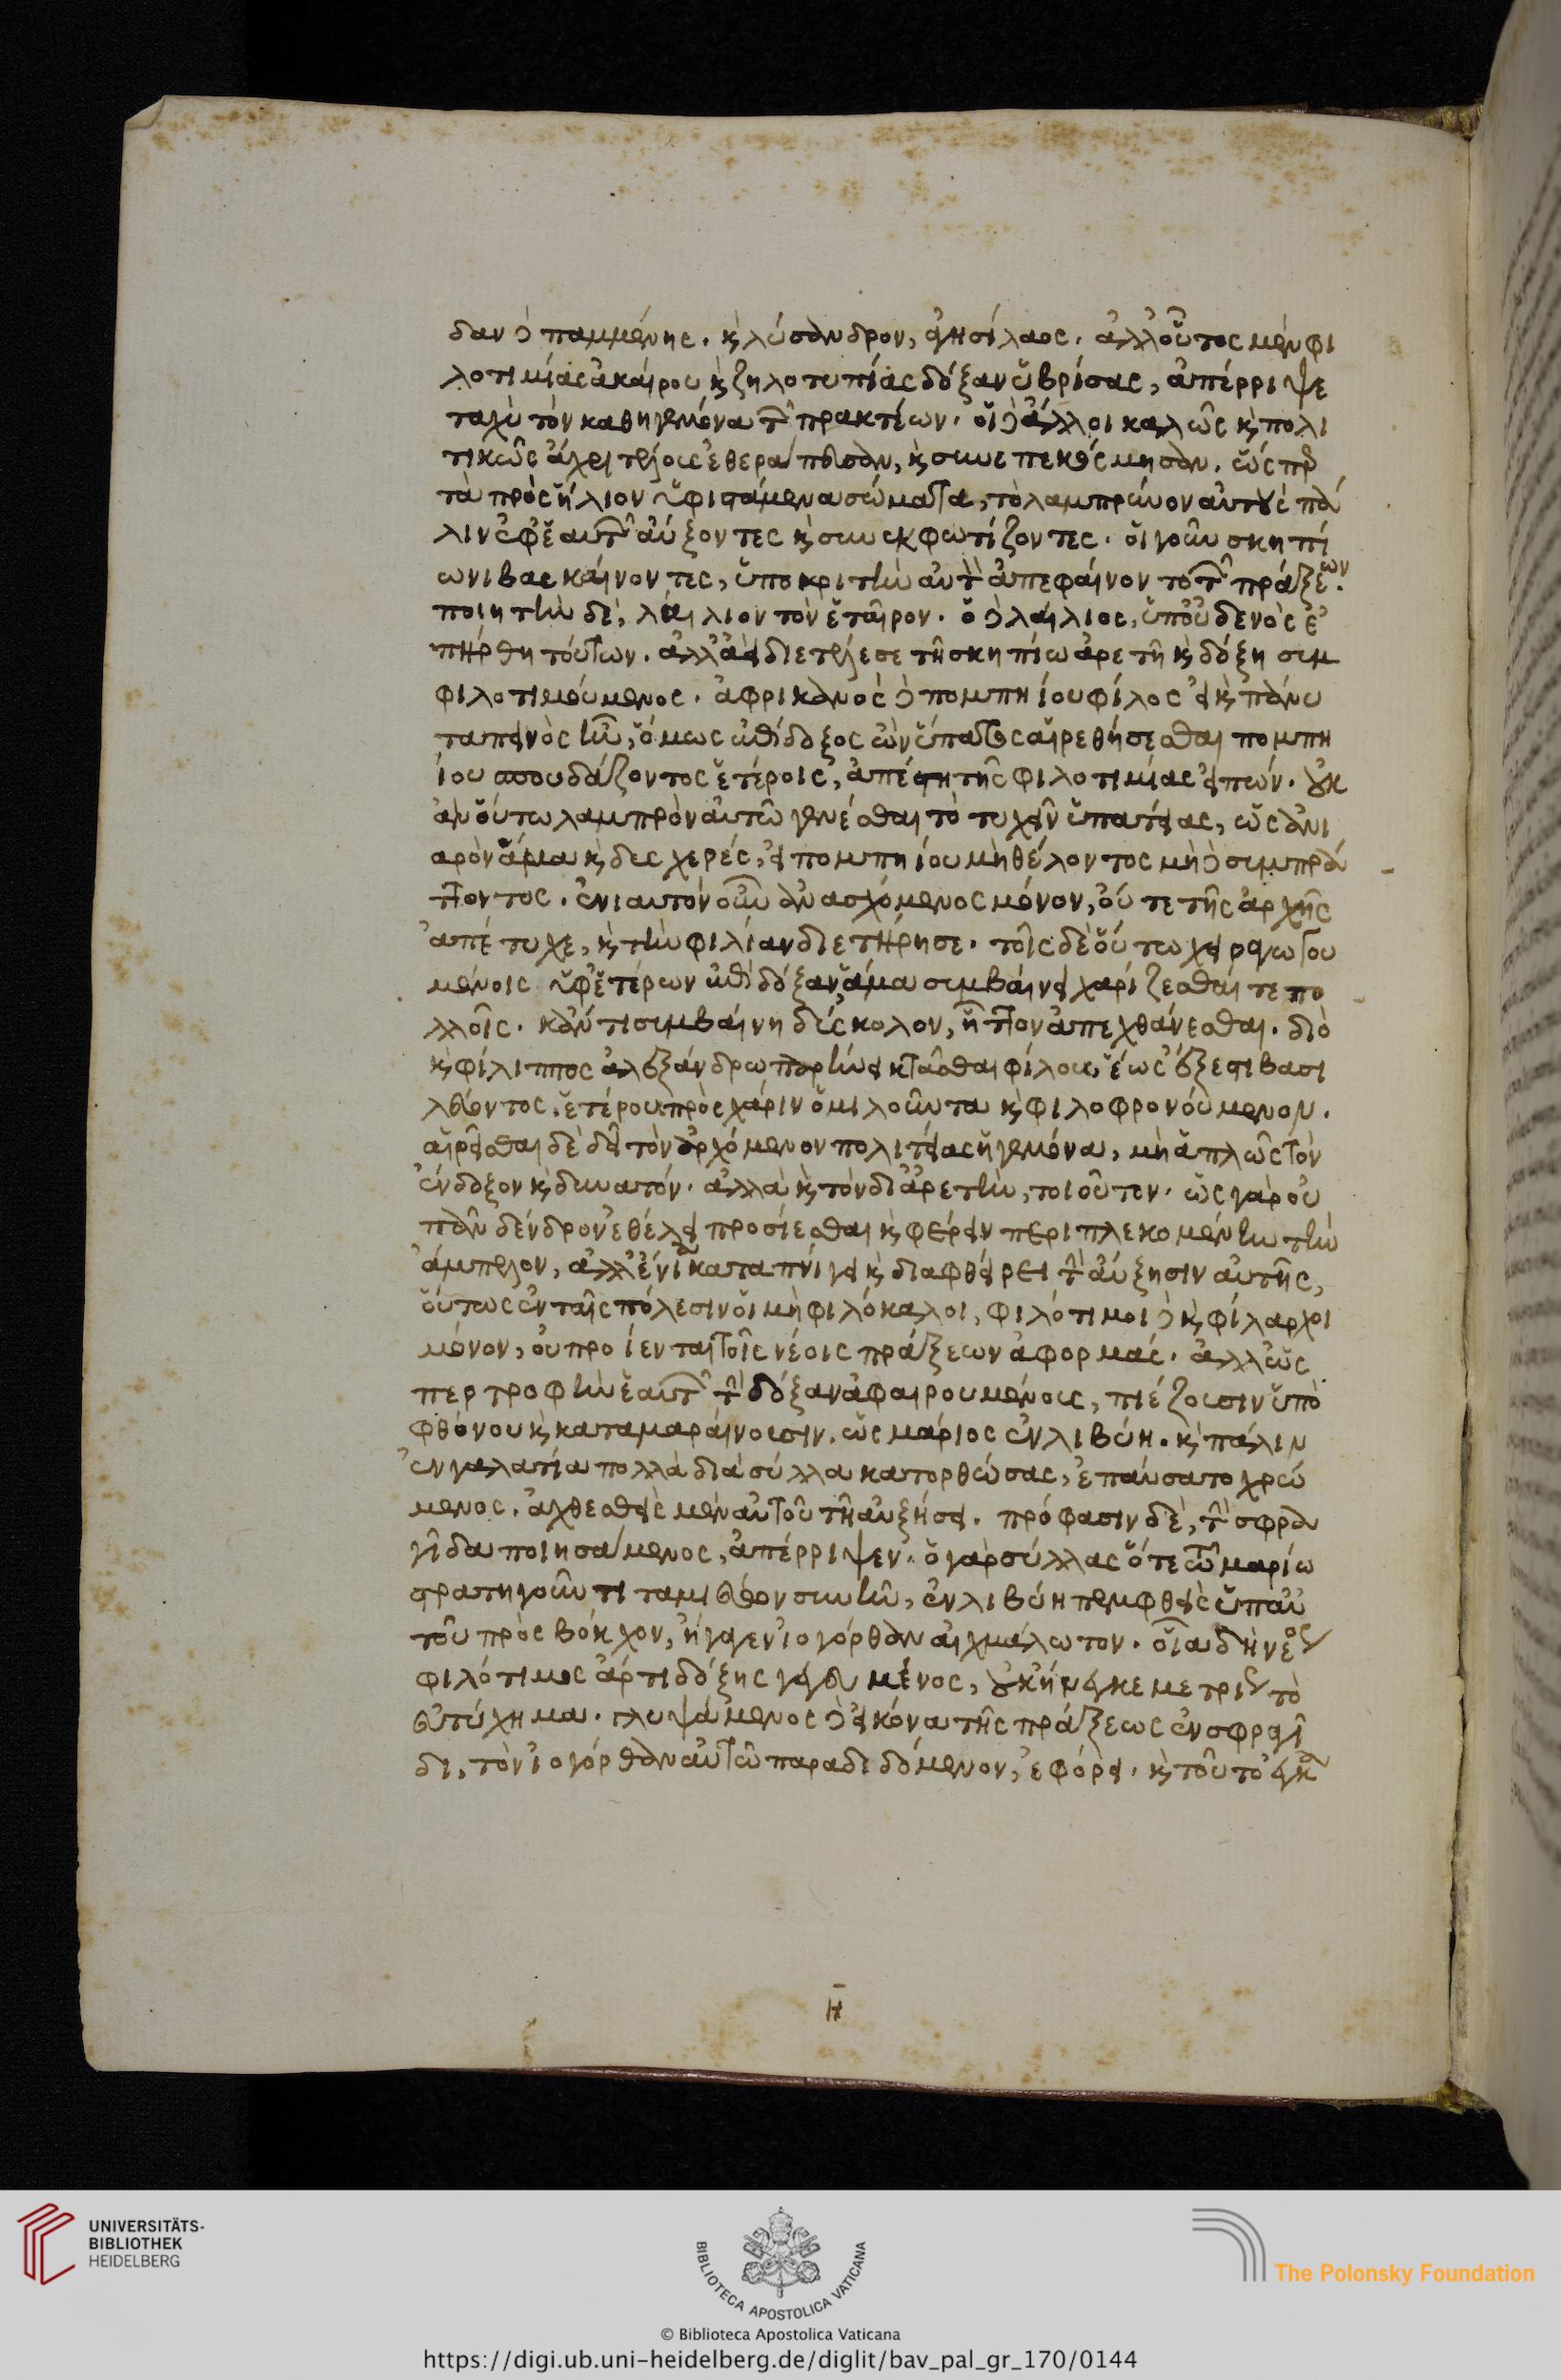 δαν δὲ παμμένης. καὶ λύσανδρον, ἀγησίλαος. ἀλλ' οὗτος μὲν φι
λοτιμίας ἀκαίρου καὶ ζηλοτυπίας δόξαν ὑβρίσας, ἀπέρριψε
ταχὺ τὸν καθηγεμόνα τῶν πρακτέων. οἱ δὲ ἄλλοι καλῶς καὶ πολι
τικῶς ἄχρι τέλους ἐθεράπευσαν, καὶ συνεπεκόσμησαν. ὥσπερ
τὰ πρὸς ἥλιον ὑφιστάμενα σώματα, τὸ λαμπρύνον αὐτοὺς πά
λιν ἀφ' ἑαυτῶν αὔξοντες καὶ συνεκφωτίζοντες. οἱ γοῦν σκηπί
ωνι βασκαίνοντες, ὑποκριτὴν αὐτὸν ἀπεφαίνοντο τῶν πράξεων.
ποιητὴν δὲ, λαίλιον τὸν ἑταῖρον. ὁ δὲ λαίλιος, ὑπ' οὐδενὸς ἐ
πήρθη τούτων. ἀλλ' ἀεὶ διετέλεσε τῇ σκηπίωνος ἀρετῇ καὶ δόξῃ συμ
φιλοτιμούμενος. ἀφρικανὸς δὲ πομπηίου φίλος εἰ καὶ πάνυ
ταπεινὸς ἦν, ὅμως ἐπίδοξος ὢν ὕπατος αἱρεθήσεσθαι πομπη
ίου σπουδάζοντος ἑτέροις, ἀπέστη τῆς φιλοτιμίας εἰπών. οὐκ
ἂν οὕτω λαμπρὸν αὐτῷ γενέσθαι τὸ τυχεῖν ὑπατείας, ὡς ἀνι
αρὸν ἅμα καὶ δυσχερές, εἰ πομπηίου μὴ θέλοντος μὴ δὲ συμπρά
ττοντος. ἐνιαυτὸν οὖν ἀνασχόμενος μόνον, οὔτε τῆς ἀρχῆς
ἀπέτυχε, καὶ τὴν φιλίαν διετήρησε. τοῖς δὲ οὕτω χειραγωγου
μένοις ὑφ' ἑτέρων ἐπὶ δόξαν, ἅμα συμβαίνει χαρίζεσθαί τε πο
λλοῖς. κἄν τι συμβαίνῃ δύσκολον, ἧττον ἀπεχθάνεσθαι. διὸ
καὶ φίλιππος ἀλεξάνδρῳ παρῄνει κτᾶσθαι φίλους, ἕως ἔξεστι βασι
λεύοντος. ἑτέρου πρὸς χάριν ὁμιλοῦντα καὶ φιλοφρονούμενον.
αἱρεῖσθαι δὲ δεῖ τὸν ἀρχόμενον πολιτείας ἡγεμόνα, μὴ ἁπλῶς τὸν
ἔνδοξον καὶ δυνατόν. ἀλλὰ καὶ τὸν δι' ἀρετὴν, τοιοῦτον. ὡς γὰρ οὐ
πᾶν δένδρον ἐθέλει προσίεσθαι καὶ φέρειν περιπλεκομένην τὴν
ἄμπελον, ἀλλ' ἔνια καταπνίγει καὶ διαφθείρει τὴν αὔξησιν αὐτῆς,
οὕτως ἐν ταῖς πόλεσιν οἱ μὴ φιλόκαλοι, φιλότιμοι δὲ καὶ φίλαρχοι
μόνον, οὐ προίενται τοῖς νέοις πράξεων ἀφορμάς. ἀλλ' ὥς
περ τροφὴν ἑαυτῶν τὴν δόξαν ἀφαιρουμένους, πιέζουσιν ὑπὸ
φθόνου καὶ καταμαραίνουσιν. ὡς μάριος ἐν λιβύῃ. καὶ πάλιν
ἐν γαλατίᾳ πολλὰ διὰ σύλλα κατορθώσας, ἐπαύσατο χρώ
μενος. ἀχθεσθεὶς μὲν αὐτοῦ τῇ αὐξήσει. πρόφασιν δὲ, τὴν σφρα
γῖδα ποιησάμενος, ἀπέρριψεν. ὁ γὰρ σύλλας ὅτε τῷ μαρίῳ
στρατηγοῦντι ταμιεύων συνῆν, ἐν λιβύῃ πεμφθεὶς ὑπ' αὐ
τοῦ πρὸς βόκχον, ἤγαγεν ἰογόρθαν αἰχμάλωτον. οἷα δὴ νέος
φιλότιμος ἄρτι δόξης γεγευμένος, οὐκ ἤνεγκε μετρίως τὸ
εὐτύχημα. γλυψάμενος δὲ εἰκόνα τῆς πράξεως ἐν σφραγῖ
δι, τὸν ἰογόρθαν αὐτῷ παραδιδόμενον, ἐφόρει. καὶ τοῦτο ἐγκα
η
UNIVERSITÄTS-
BIBLIOTHEK
HEIDELBERG
BIBLIOTECA APOSTOLICA VATICANA
The Polonsky Foundation
© Biblioteca Apostolica Vaticana
https://digi.ub.uni-heidelberg.de/diglit/bav_pal_gr_170/0144